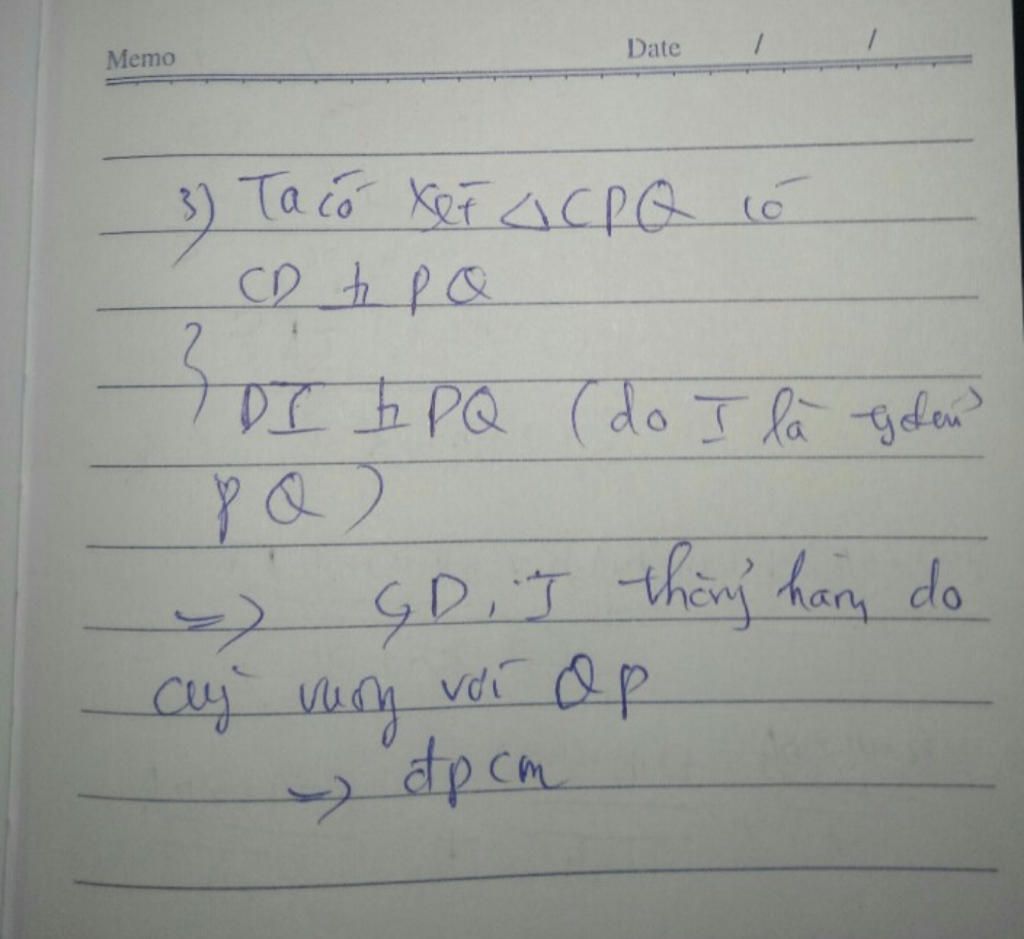 Memo Date / /
3) Ta có xét △CPQ có
CD ⊥ PQ
DI ⊥ PQ (do I là
PQ)
=> C, D, I thẳng hàng do
cùng vuông với QP
=> đpcm